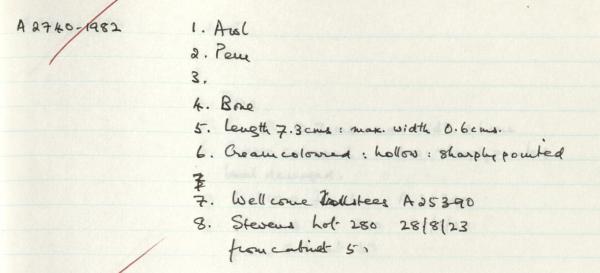 A 2740-1982 1. Awl
2. Peru
3.
4. Bone
5. Length 7.3cms : max. width 0.6cms.
6. Cream coloured : hollow : sharply pointed
7
7. Wellcome Trustees A25390
8. Stevens Lot 280 28/8/23
from cabinet 5